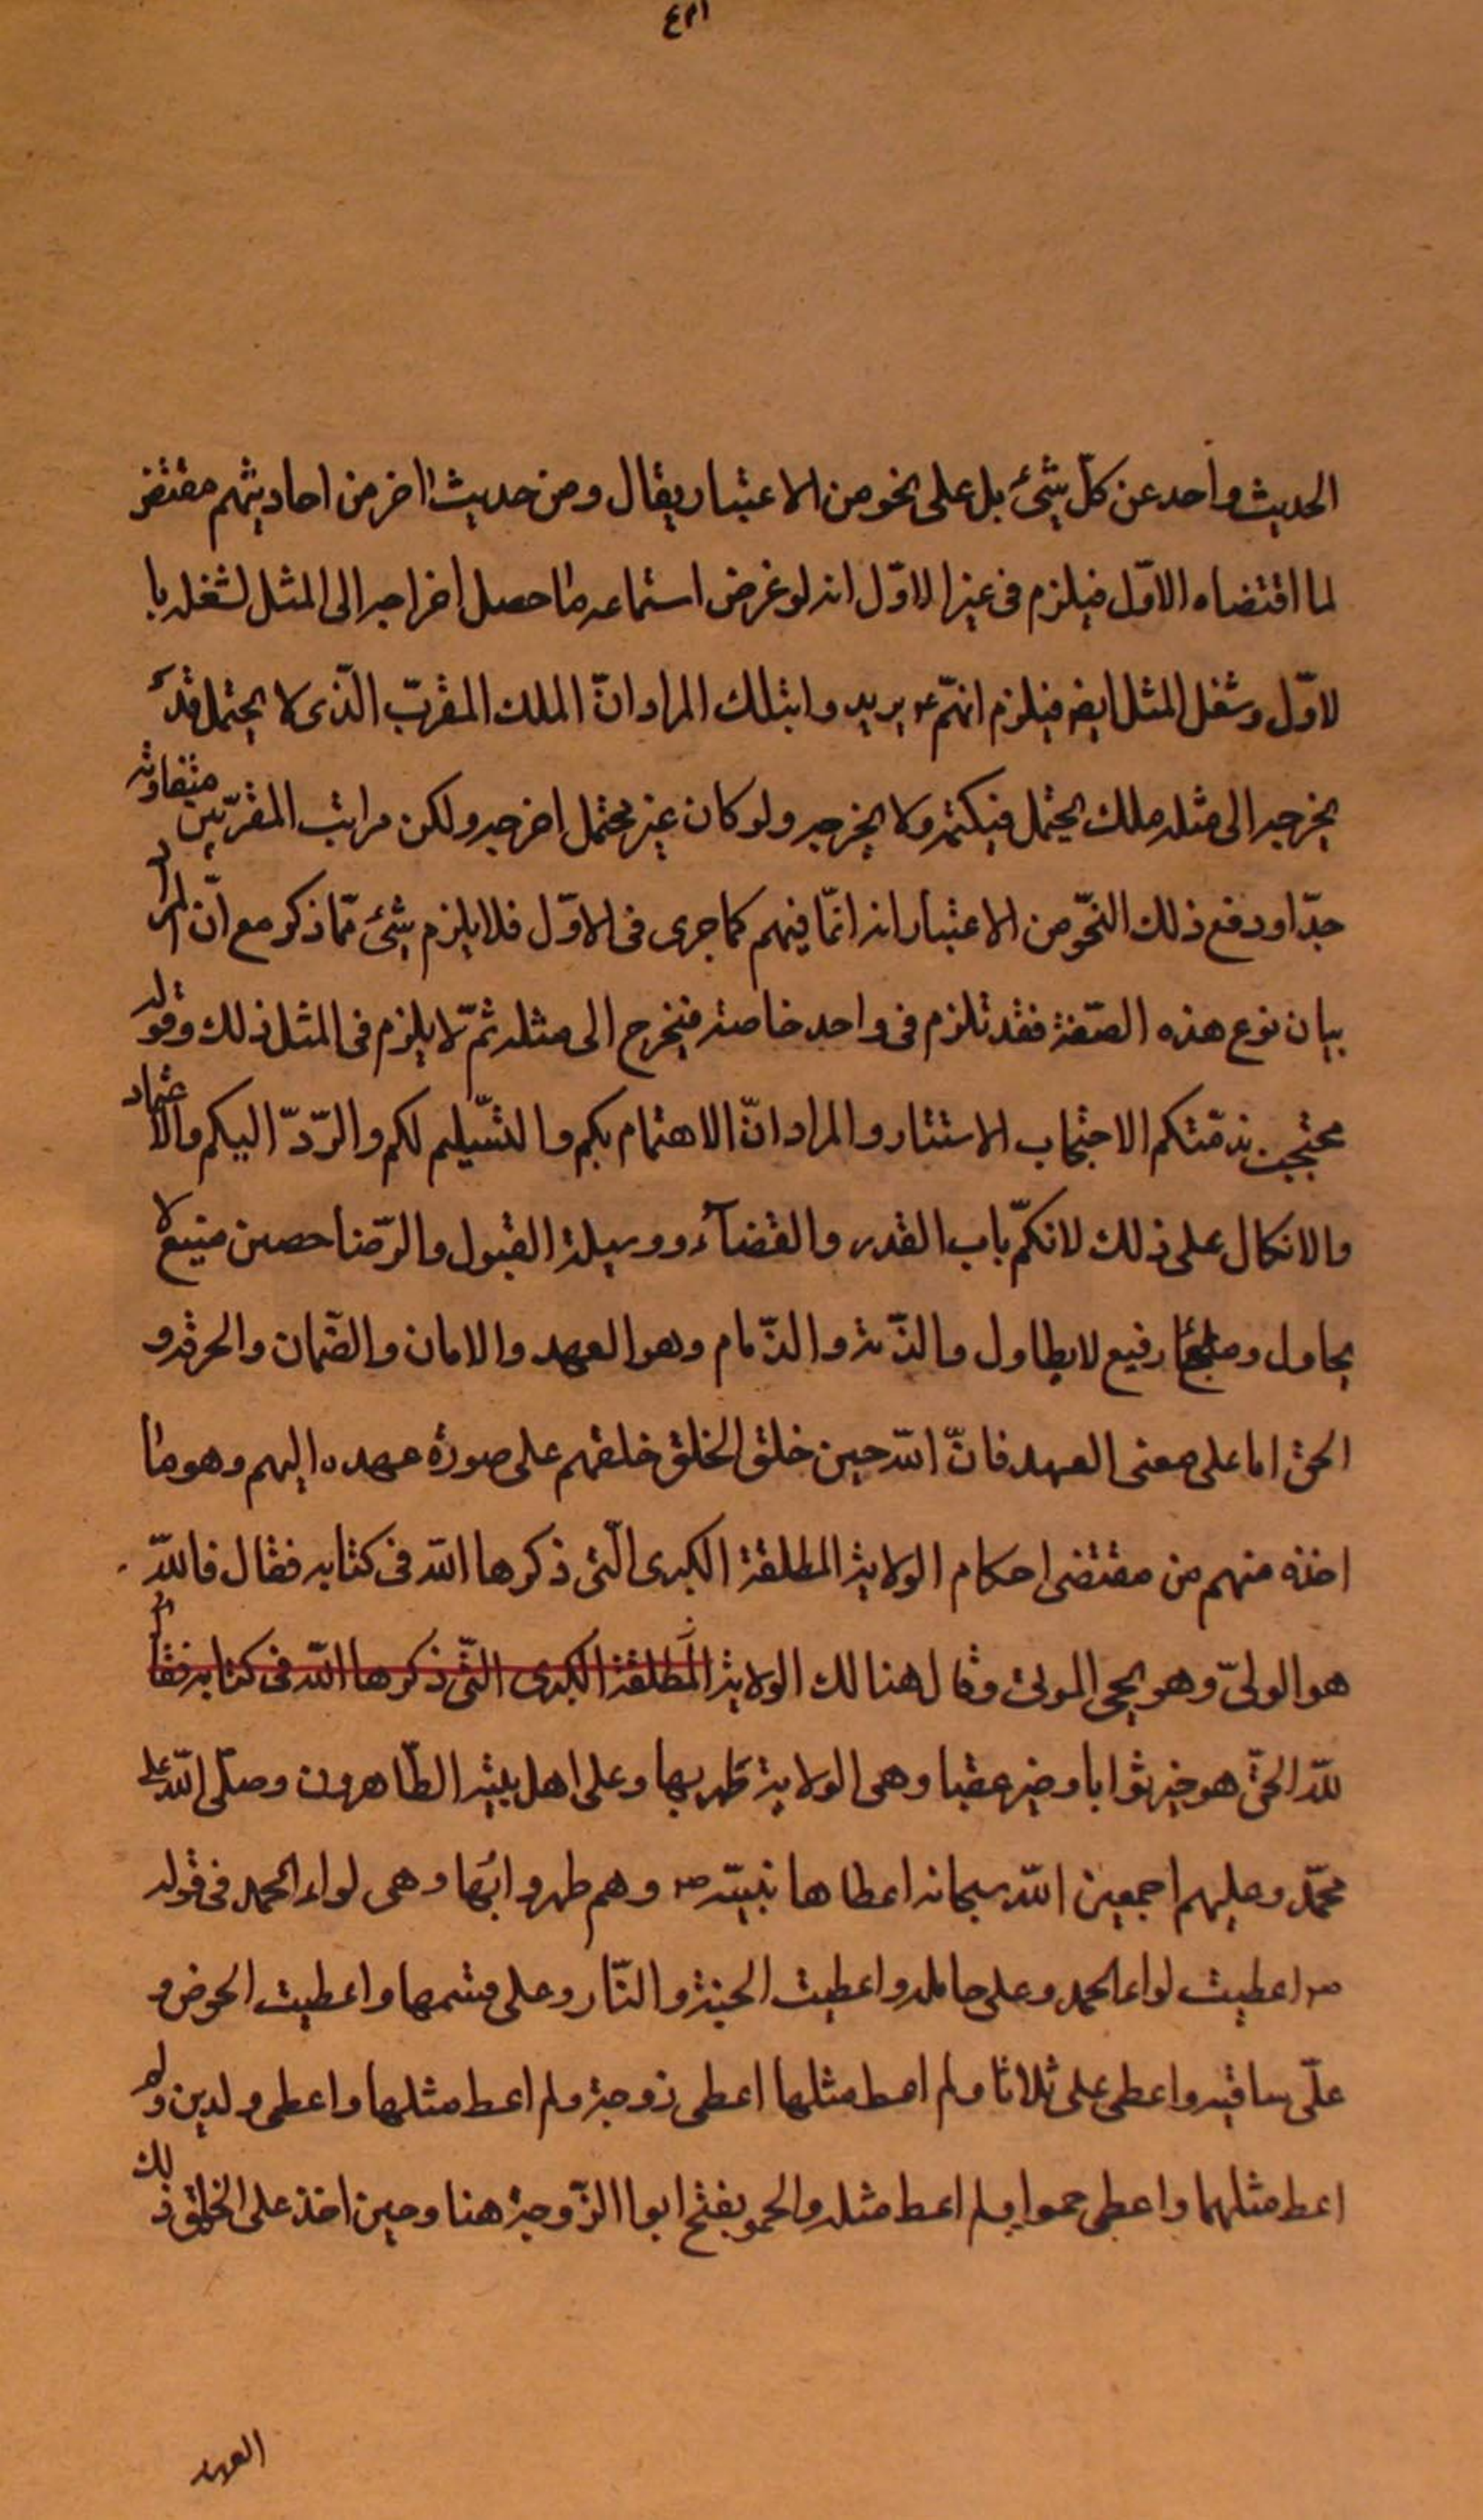 الحديث واحد عن كلّ شئ بل على نحو من الاعتبار يقال ومن حديث اخر من احاديثهم مقتض
لما اقتضاه الاوّل فيلزم فى غير الاوّل انه لو غرض استماعه لما حصل اخراجه الى المثل لشغله با
لاوّل وشغل المثل ايضا فيلزم انهّم ع يريدوا بتلك المراد انّ الملك المقرّب الّذى لا يحتمله قد
يخرجه الى مثله ملك يحتمل فيكتمه ولا يخرجه ولو كان غير محتمل اخرجه ولكن مراتب المقرّبين متفاوته
جدّا ودفع ذلك النحّو من الاعتبار انه انمّا فيهم كما جرى فى الاوّل فلا يلزم شئ ممّا ذكر مع انّ المراد
بيان نوع هذه الصّفة فقد تلزم فى واحد خاصته فيخرج الى مثله ثمّ لا يلزم فى المثل ذلك وقوله
محتجبين بذمّتكم الاحتجاب الاستتار والمراد انّ الاهتمام بكم والتسّليم لكم والرّدّ اليكم والاعتماد
والاتكال على ذلك لانكمّ باب القدر والقضآء ووسيلة القبول والرّضا حصين منيع لا
يحاول وملجئا رفيع لا يطاول والذّمة والذّمام وهو العهد والامان والضّمان والحرمة و
الحق اما على معنى العهد فانّ اللّه حين خلق الخلق خلقهم على صورة عهده اليهم وهو ما
اخذه منهم من مقتضى احكام الولاية المطلقة الكبرى الّتى ذكرها اللّه فى كتابه فقال فاللّه
هو الولىّ وهو يحيى الموتى وقال هنا لك الولاية المطلقة الكبرى التّى ذكرها اللّه فى كتابه فقال
للّه الحقّ هو خير ثوابا وخير عقبا وهى الولاية ظهر بها وعلى اهل بيته الطّاهرون وصلّى اللّه على
محمّد وعليهم اجمعين اللّه سبحانه اعطاها نبيّه ص وهم ظهروا بها وهى لواء الحمد فى قوله
ص اعطيت لواء الحمد وعلى حامله واعطيت الجنة والنّار وعلى قسمها واعطيت الحوض و
علّى ساقيه واعطى على ثلاثا ولم اعط مثلها اعطى زوجة ولم اعط مثلها واعطى ولدين ولم
اعط مثلهما واعطى حموا ولم اعط مثله والحمو بفتح ابوا الزّوجة هنا وحين اخذ على الخلق ذلك
العهد